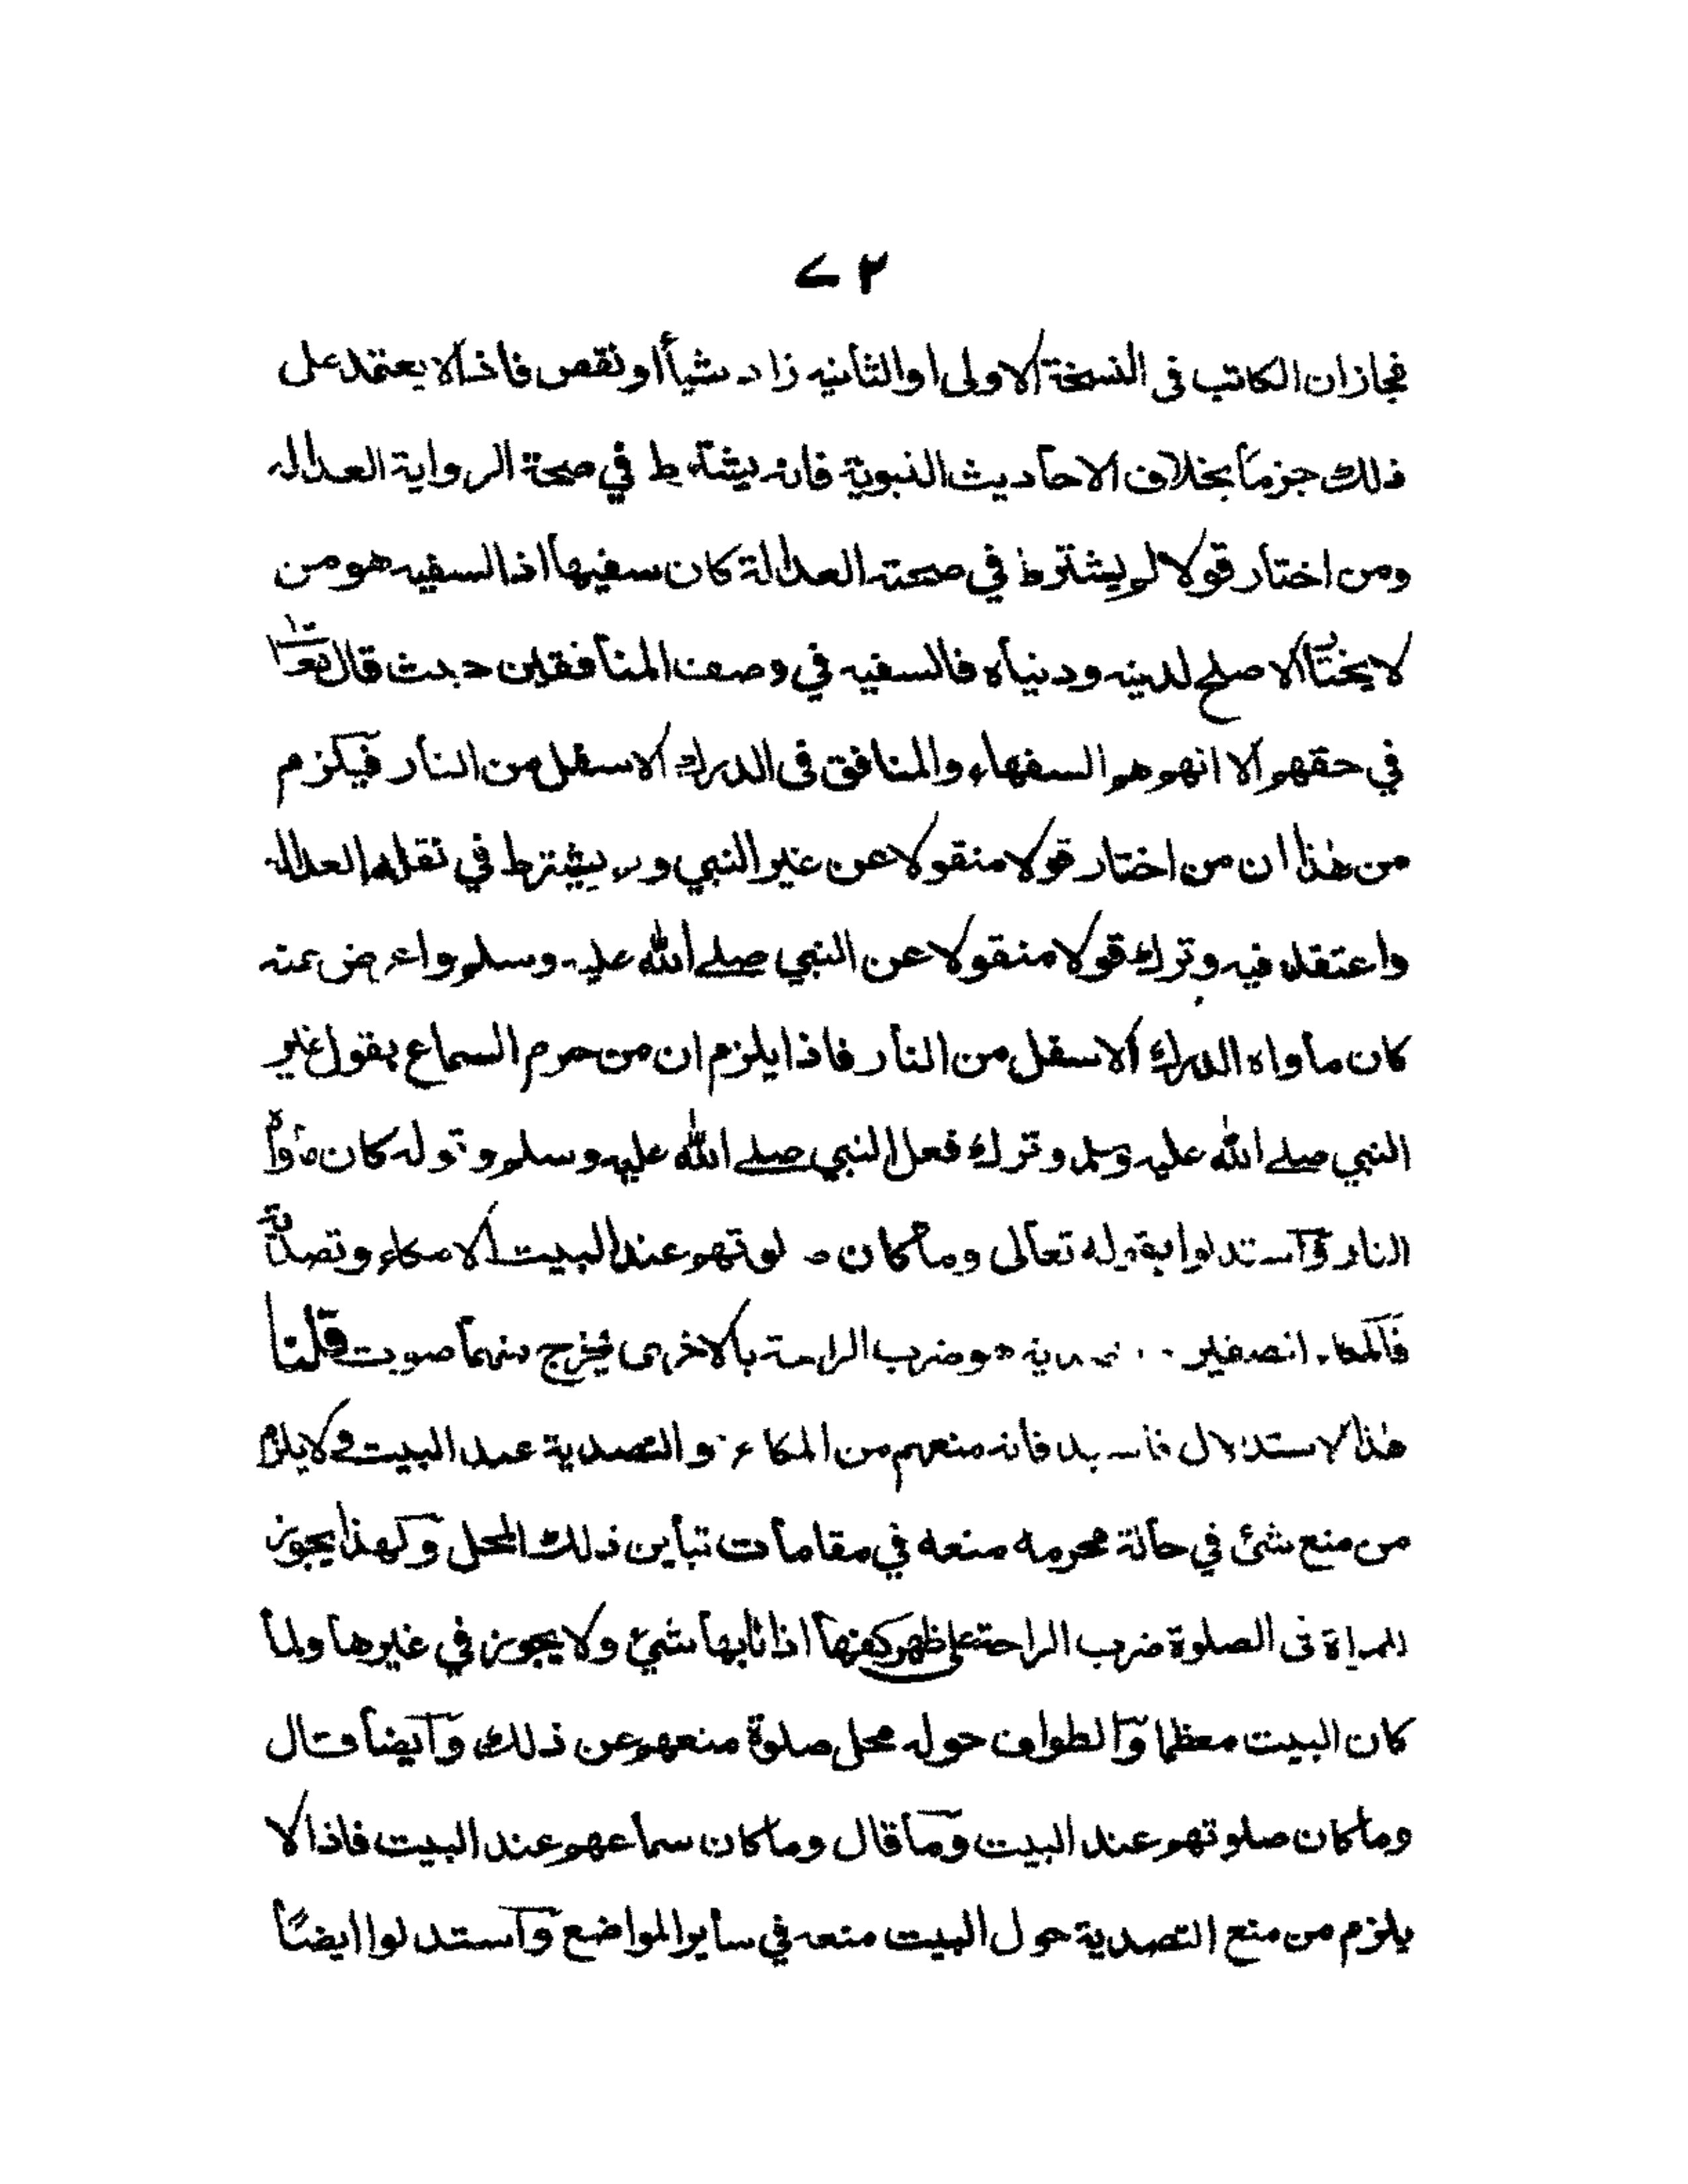 ٧٢
فجاز ان الكاتب فى النسخة الاولى او الثانيه زاد شيأ او نقص فاذا لا يعتمد على
ذلك جزما بخلاف الاحاديث النبوية فانه يشترط في صحة الرواية العدالة
ومن اختار قولا لم يشترط في صحته العدالة كان سفيها اذ السفيه هو من
لا يختار الاصلح لدينه ودنياه فالسفيه في وصف المنافقين حيث قال تعالى
في حقهم الا انهم هم السفهاء والمنافق فى الدرك الاسفل من النار فيلزم
من هذا ان من اختار قولا منقولا عن غير النبي ولم يشترط في نقله العدالة
واعتقد فيه وترك قولا منقولا عن النبي صلے الله عليه وسلم واعرض عنه
كان ماواه الدرك الاسفل من النار فاذا يلزم ان من حرم السماع بقول غير
النبي صلے الله عليه وسلم وترك فعل النبي صلے الله عليه وسلم وقوله كان ماواه
النار واستدلوا بقوله تعالى وما كان صلوتهم عند البيت الا مكاء وتصدية
فالمكاء الصفير والتصدية هو ضرب الراحة بالاخرى فيخرج منهما صوت قلنا
هذا الاستدلال فاسد فانه منعهم من المكاء والتصدية عند البيت ولا يلزم
من منع شئ في حالة محرمه منعه في مقامات تباين ذلك المحل ولهذا يجوز
للمراة فى الصلوة ضرب الراحة على ظهر كفها اذا نابها شيئ ولا يجوز في غيرها ولما
كان البيت معظما والطواف حوله محل صلوة منعهم عن ذلك وايضا قال
وما كان صلوتهم عند البيت وما قال وما كان سماعهم عند البيت فاذا لا
يلزم من منع التصدية حول البيت منعه في ساير المواضع واستدلوا ايضاً